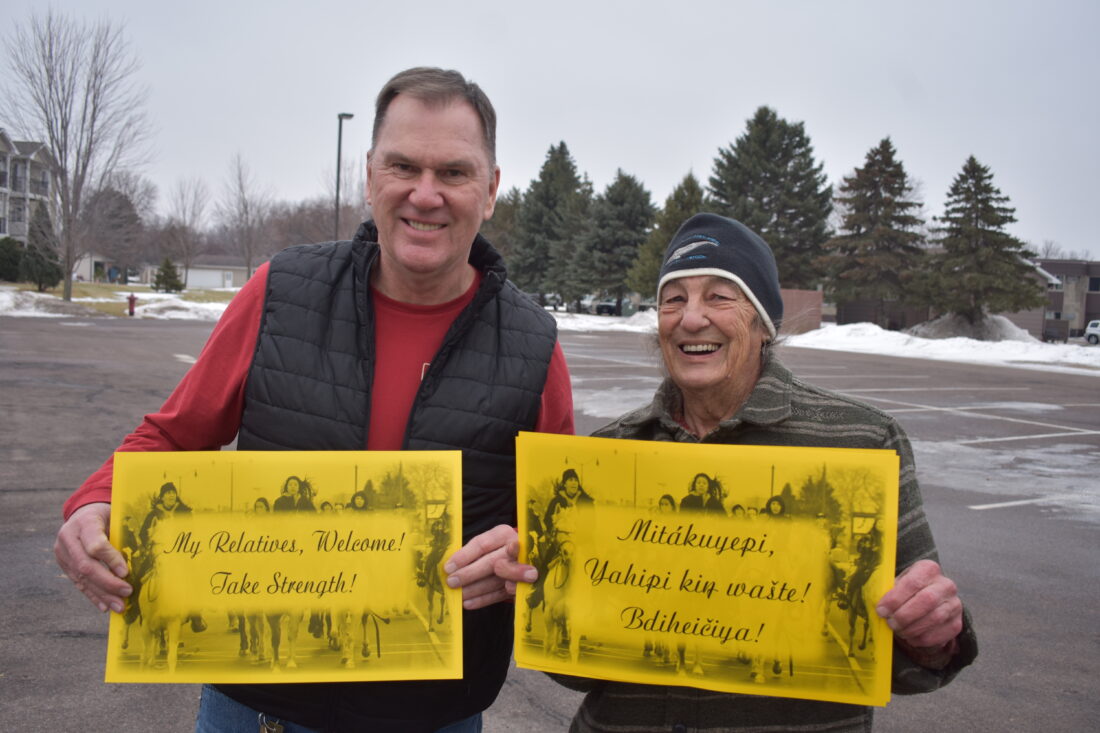 My Relatives, Welcome!
Take Strength!
Mitákuyepi,
Yahipi kiƞ wašte!
Bdiheičiya!